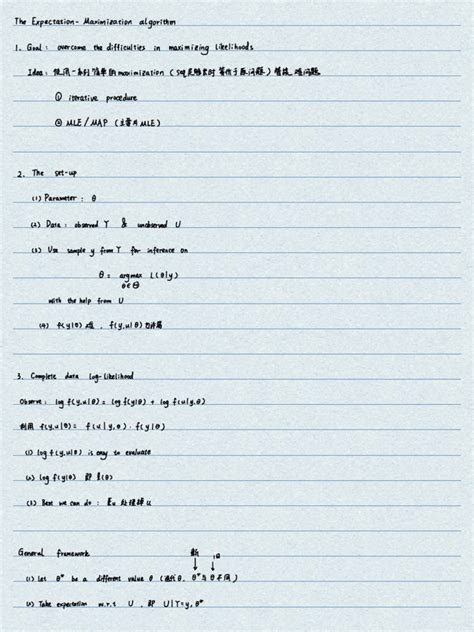 The Expectation-Maximization algorithm
1. Goal: overcome the difficulties in maximizing likelihoods
Idea: 使用一系列简单的maximization (seq足够长时等价于原问题) 替换 难问题
① iterative procedure
② MLE/MAP (主要为MLE)
2. The set-up
(1) Parameter: θ
(2) Data: observed Y & unobserved U
(3) Use sample y from Y for inference on
θ = argmax L(θ|y)
θ∈Θ
with the help from U
(4) f(y|θ) , f(y,u|θ)
3. Complete data log-likelihood
Observe: log f(y,u|θ) = log f(y|θ) + log f(u|y,θ)
利用 f(y,u|θ) = f(u|y,θ)·f(y|θ)
(1) log f(y,u|θ) is easy to evaluate
(2) log f(y|θ) 即 ℓ(θ)
(3) Best we can do: 处理掉U
General framework 新 旧
(1) Let θ* be a different value θ (迭代θ, θ*与θ不同)
(2) Take expectation w.r.t U, 即 U|Y=y,θ*